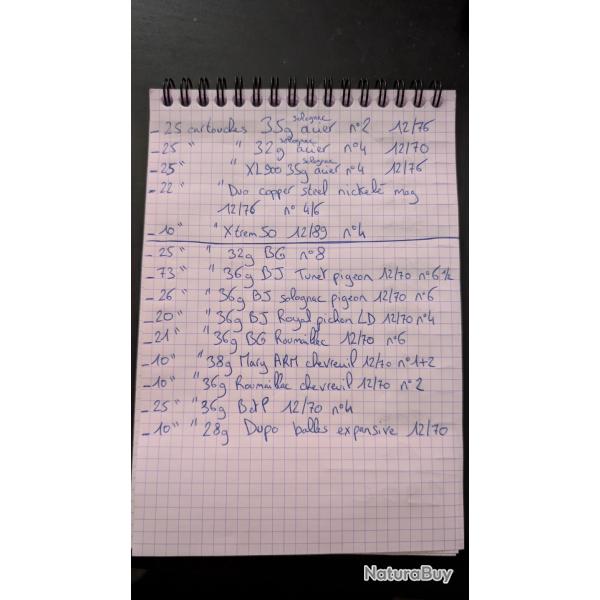 solognac
- 25 cartouches 35g acier n°2 12/76
solognac
- 25 " " 32g acier n°4 12/70
solognac
- 25 " " XL900 35g acier n°4 12/76
- 22 " " Duo copper steel nickelé mag
12/76 n° 4/6
- 10 " " Xtrem 50 12/89 n°4
- 25 " " 32g BG n°8
- 73 " " 36g BJ Tunet pigeon 12/70 n°6 1/2
- 26 " " 36g BJ solognac pigeon 12/70 n°6
- 20 " " 36g BJ Royal pichon LD 12/70 n°4
- 21 " " 36g BG Roumaillac 12/70 n°6
- 10 " " 38g Mary ARM chevreuil 12/70 n°1+2
- 10 " " 36g Roumaillac chevreuil 12/70 n°2
- 25 " " 36g B&P 12/70 n°4
- 10 " " 28g Dupo balles expansive 12/70
NaturaBuy